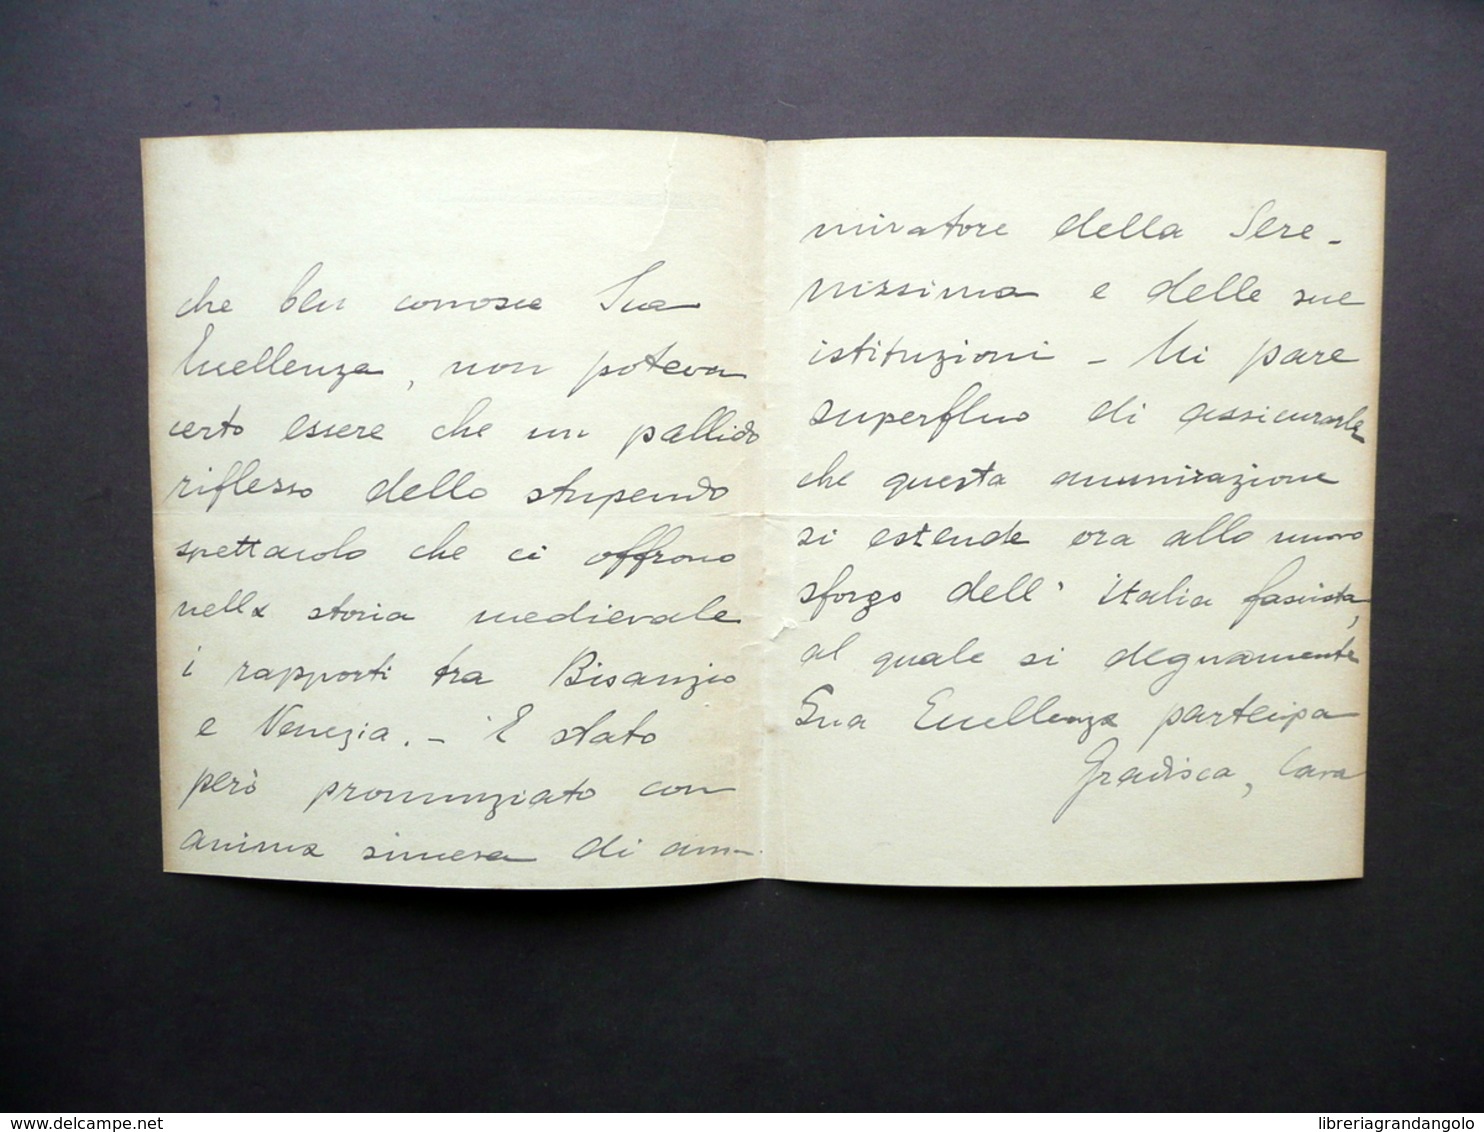 che ben conosce Sua
Eccellenza, non poteva
certo essere che un pallido
riflesso dello stupendo
spettacolo che ci offrono
nella storia medievale
i rapporti tra Bisanzio
e Venezia. - È stato
però pronunziato con
anima sincera di am-
miratore della Sere-
nissima e delle sue
istituzioni - Mi pare
superfluo di assicurarle
che questa ammirazione
si estende ora allo nuovo
sforzo dell' Italia fascista,
al quale si degnamente
Sua Eccellenza partecipa
Gradisca, Cara
delcampe.net
libreriagrandangolo